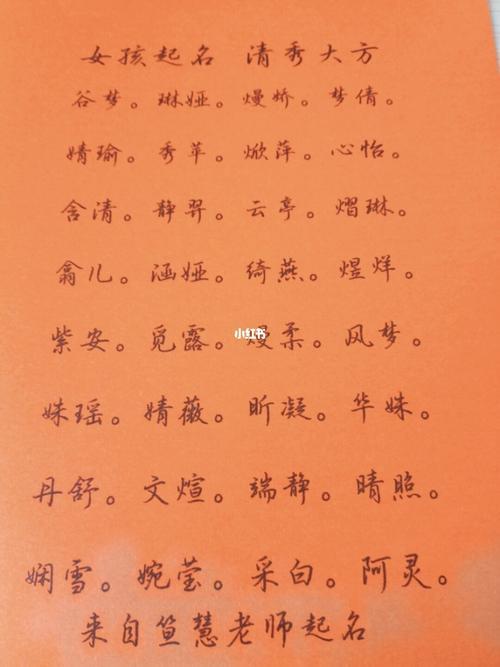 女孩起名 清秀大方
谷梦。琳娅。熳娇。梦倩。
婧瑜。秀苹。焮萍。心怡。
含清。静羿。云亭。熠琳。
翕儿。涵娅。绮燕。煜烊。
小红书
紫安。觅露。熳柔。风梦。
姝瑶。婧薇。昕凝。华姝。
丹舒。文煊。端静。晴照。
娴雪。婉莹。采白。阿灵。
来自笪慧老师起名